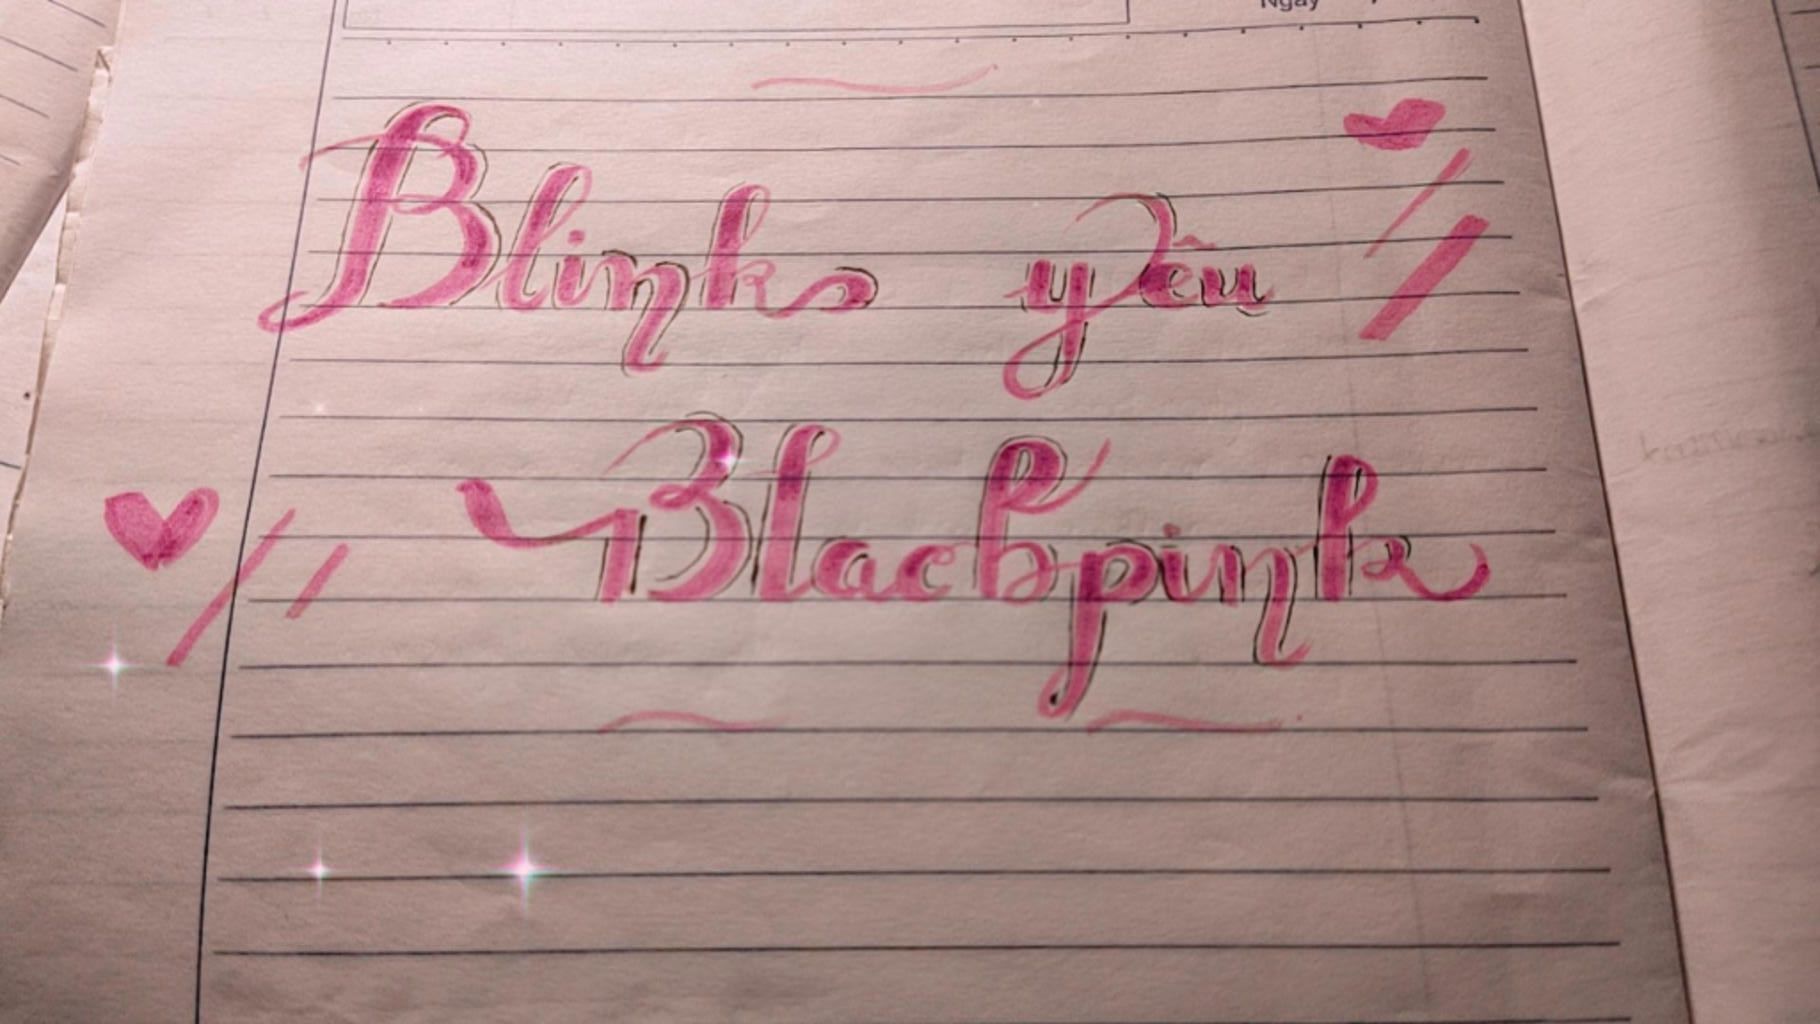 Ngày
Blinks yêu
Blackpink